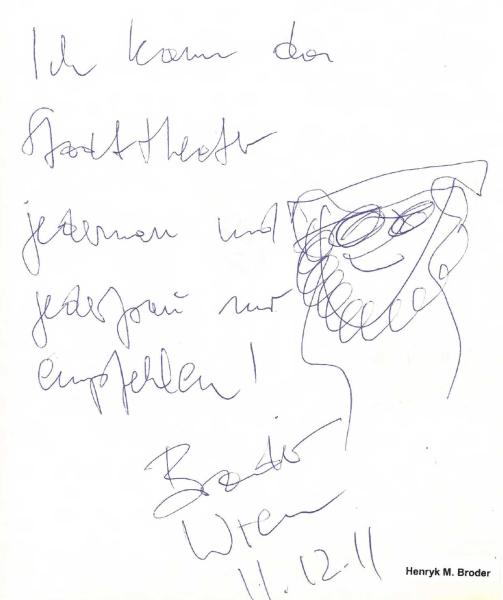 Ich kann das
Stadttheater
jederman und
jederfrau nur
empfehlen!
Broder
Wien
11.12.11
Henryk M. Broder